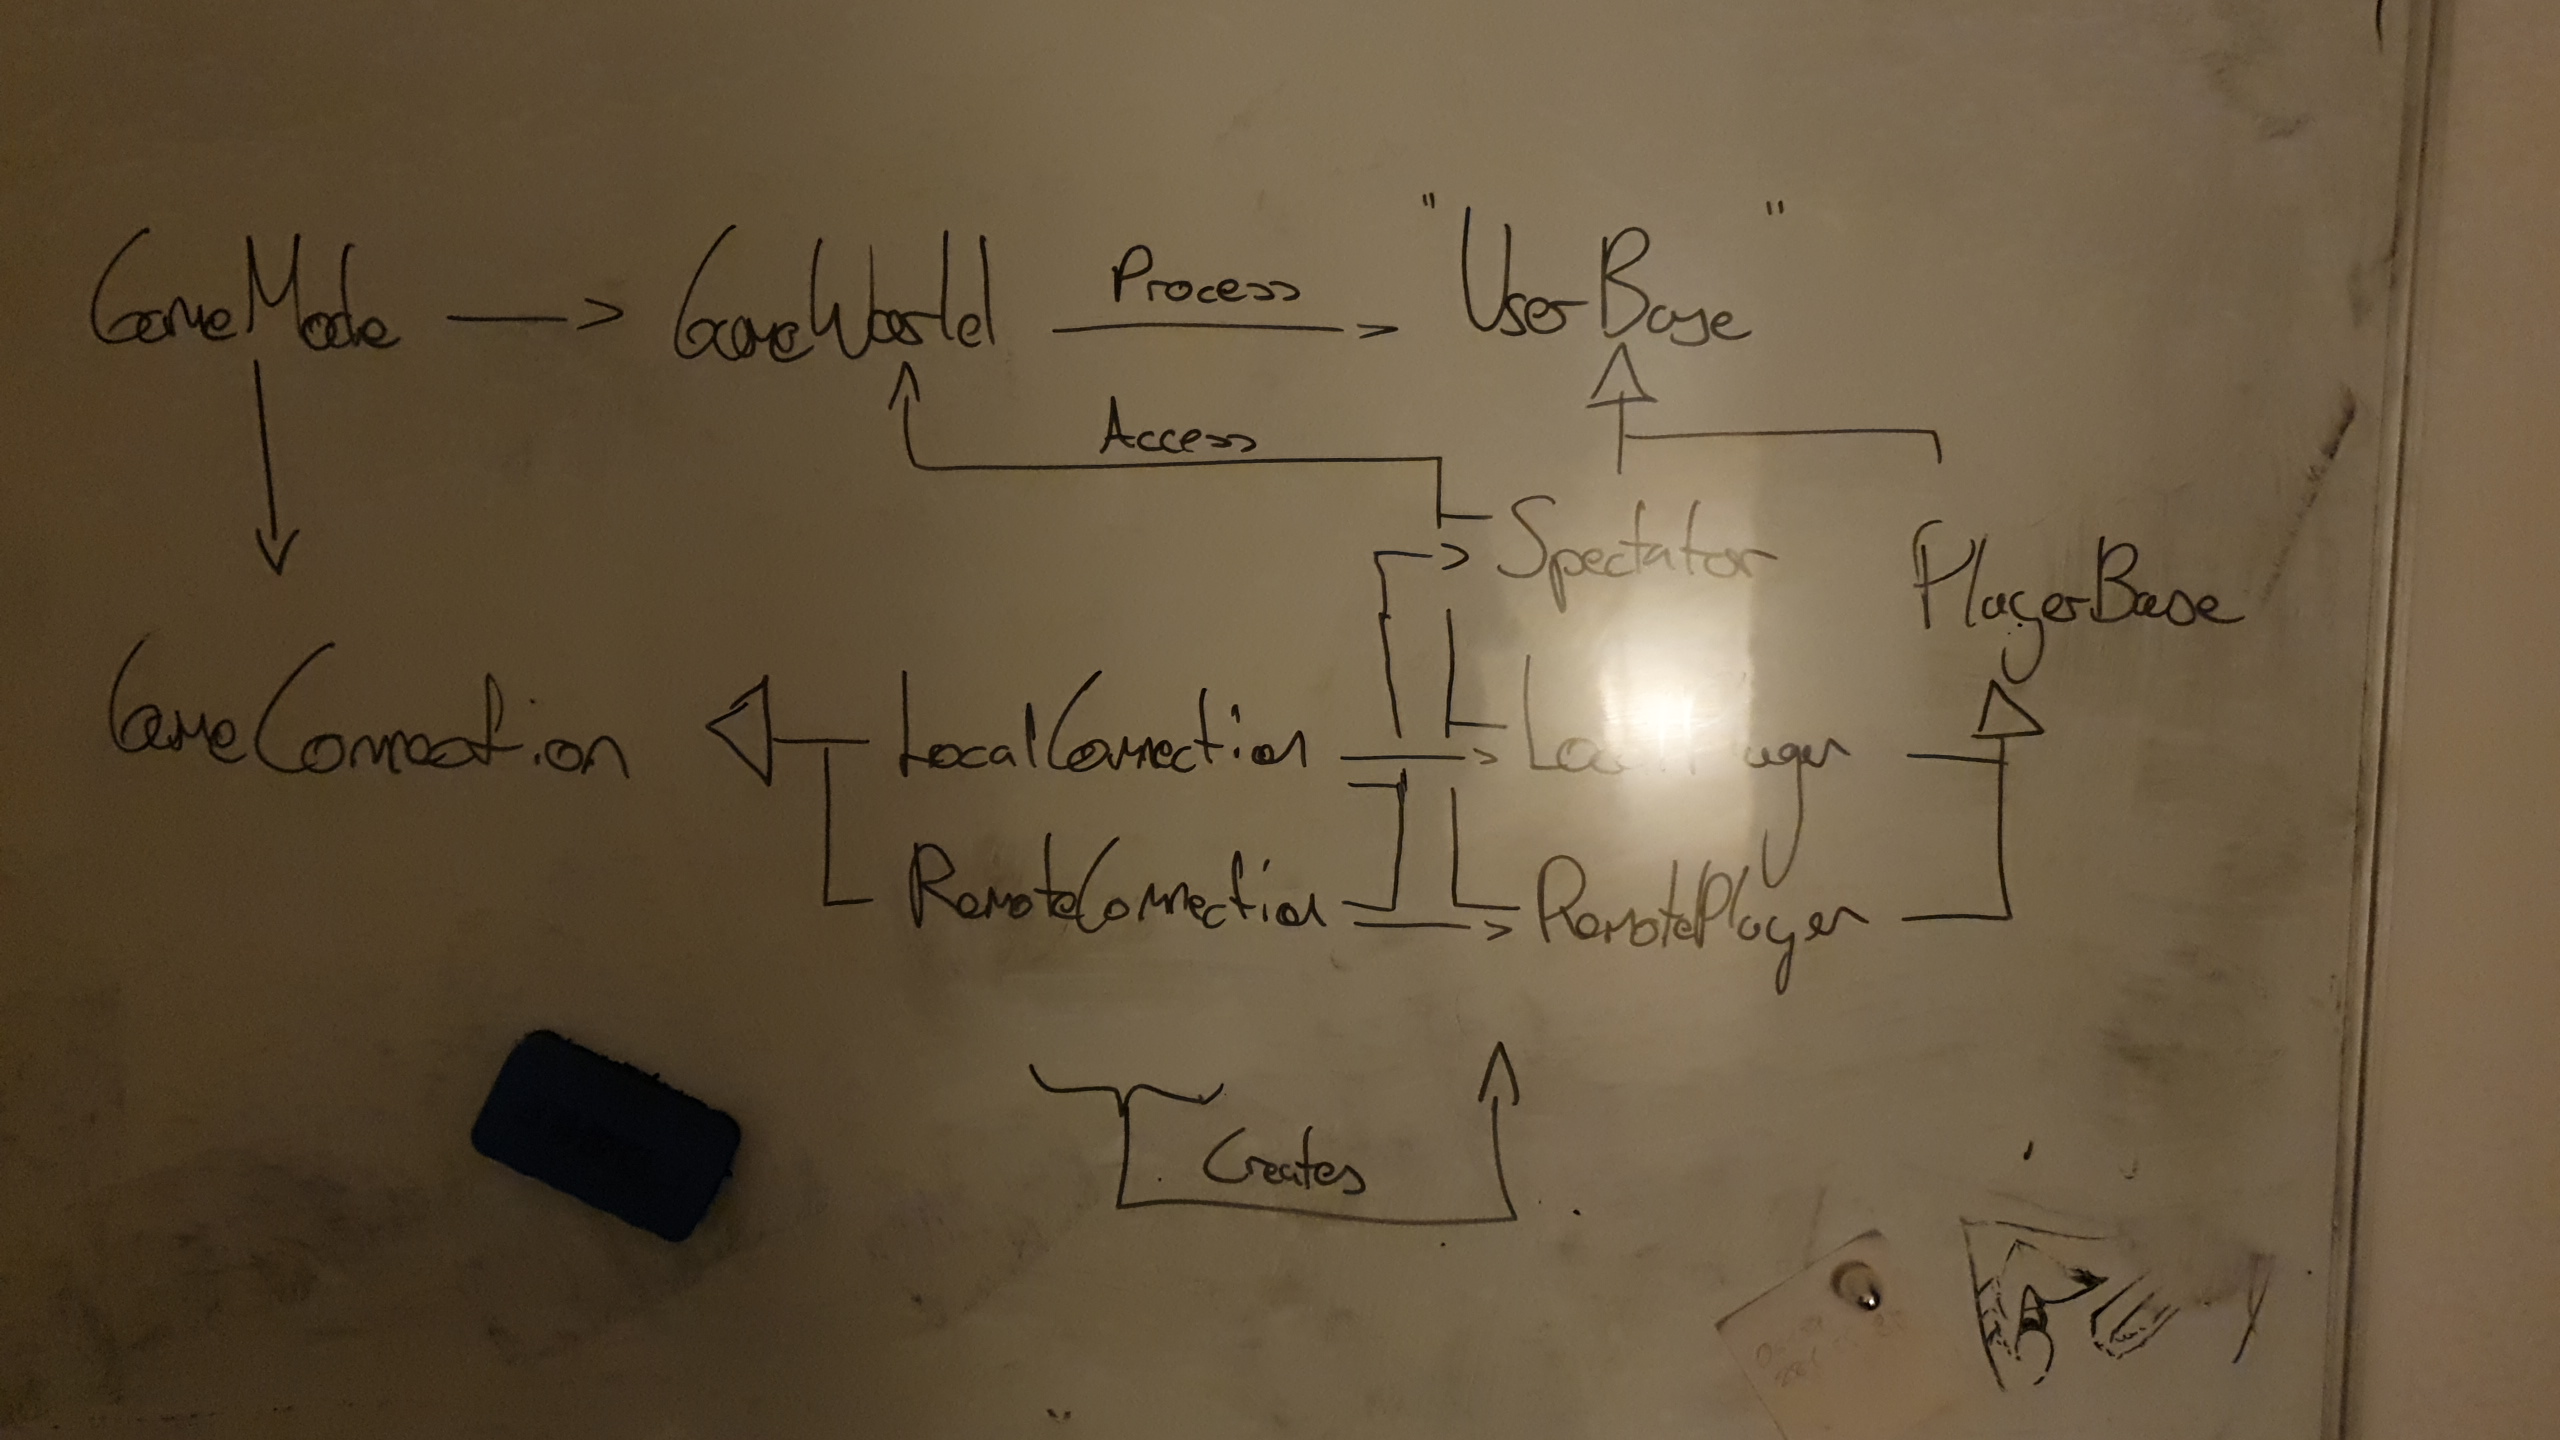 GameMode GameWorld Process "UserBase"
Access
Spectator PlayerBase
GameConnection LocalConnection LocalPlayer
RemoteConnection RemotePlayer
Creates